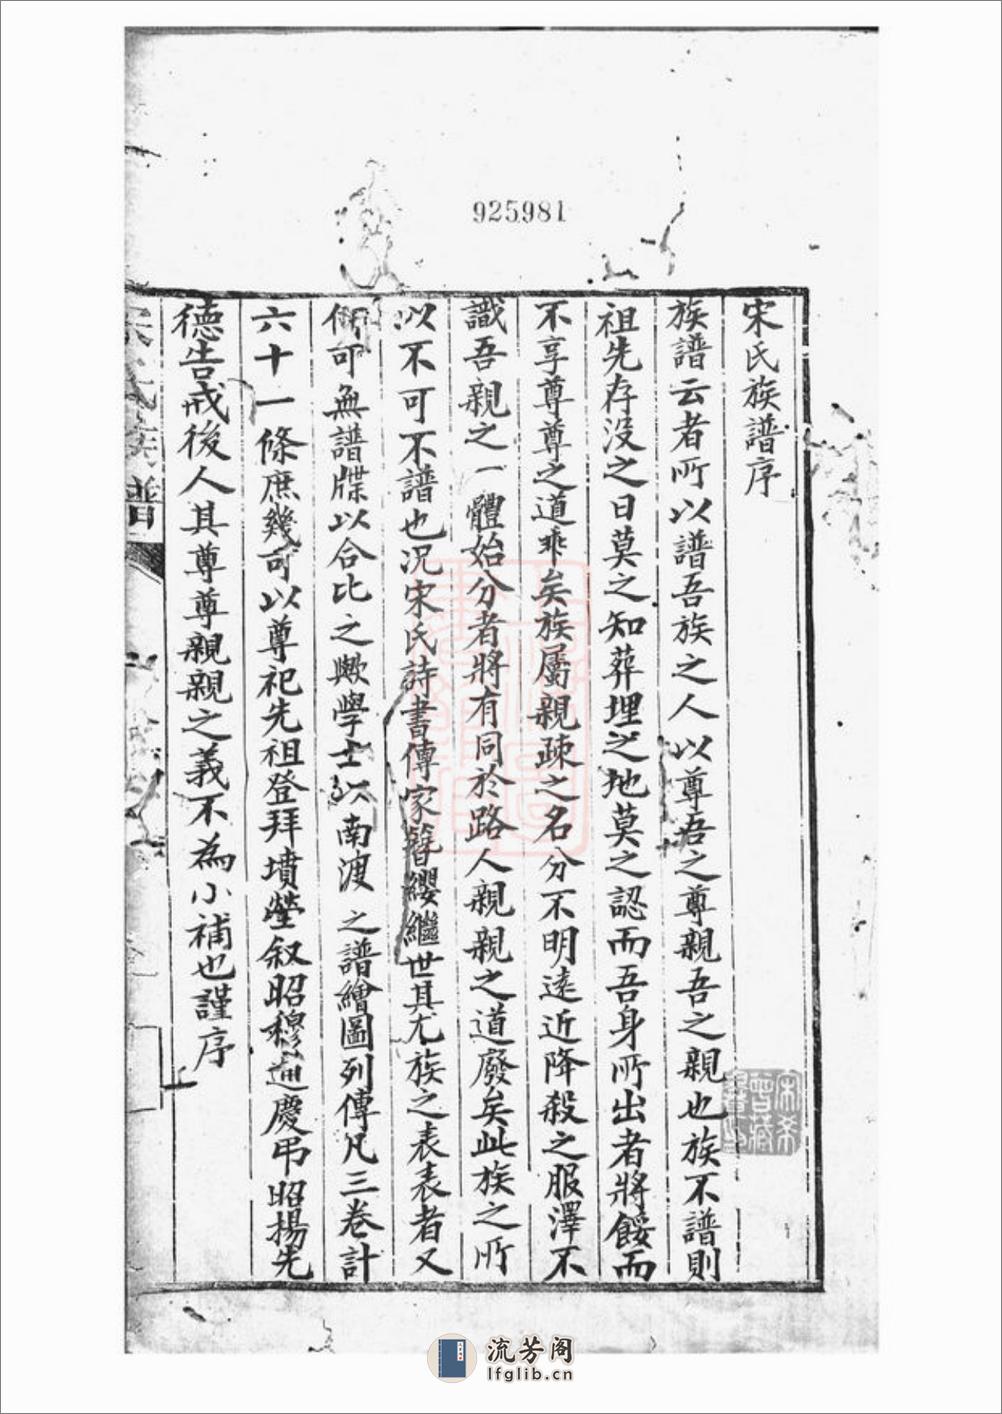 925981
宋氏族譜序
族譜云者所以譜吾族之人以尊吾之尊親吾之親也族不譜則
祖先存没之日莫之知葬埋之地莫之認而吾身所出者將餒而
不享尊尊之道乖矣族屬親疎之名分不明遠近降殺之服澤不
識吾親之一體始分者將有同於路人親親之道廢矣此族之所
以不可不譜也況宋氏詩書傳家簪纓繼世其尤族之表表者又
可無譜牒以合比之歟學士以南渡之譜繪圖列傳凡三卷計
六十一條庶幾可以尊祀先祖登拜墳塋叙昭穆通慶弔昭揚先
德告戒後人其尊尊親親之義不為小補也謹序
宋氏族譜
流芳阁
lfglib.cn